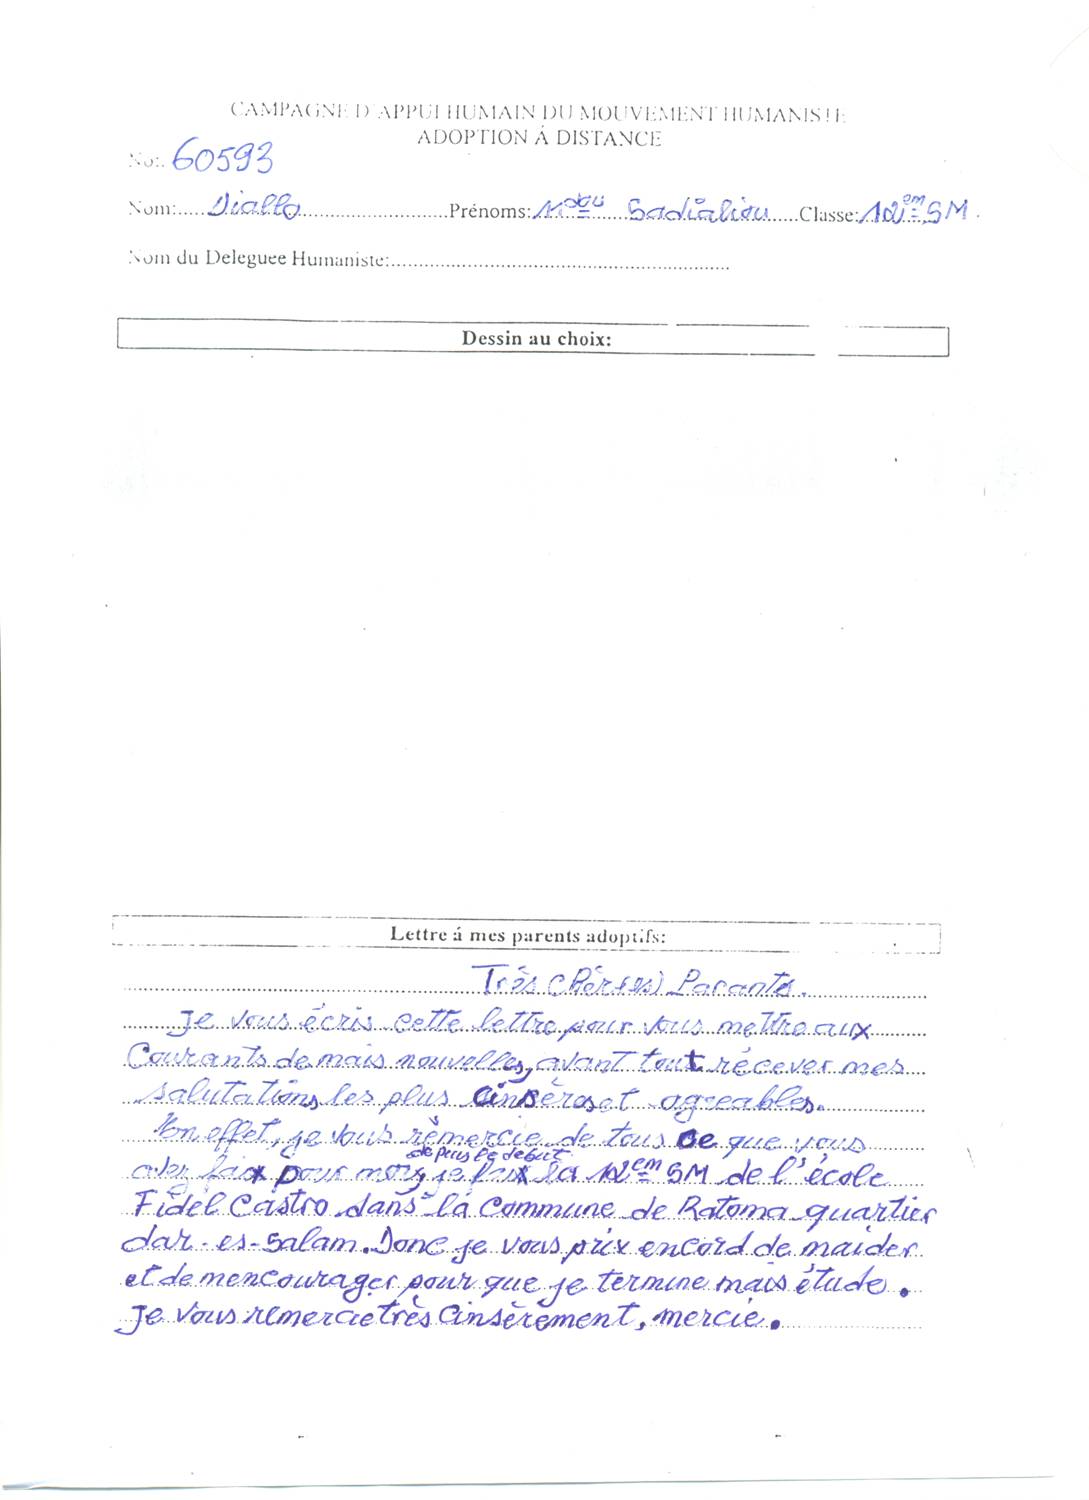 CAMPAGNE D'APPUI HUMAIN DU MOUVEMENT HUMANISTE
ADOPTION Á DISTANCE
No:. 60593
Nom:..... Diallo ..........Prénoms: Mdou Sadialiou .....Classe: 12em SM .
Nom du Deleguee Humaniste:..........
Dessin au choix:
Lettre á mes parents adoptifs:
Très Chèr(es) Parants.
Je vous écris cette lettre pour vous mettre aux
Courants de mais nouvelles, avant tout récever mes
salutations les plus cinsères et agreables.
En effet, je vous rèmercie de tous ce que vous
avez faix pour moi, depuis le debut je faix la 12em SM de l'école
Fidèl Castro dans la Commune de Ratoma quartier
dar-es-Salam. Donc je vous prix encord de maider
et de mencourager pour que je termine mais étude.
Je vous remercie très Cinsèrement, mercie.